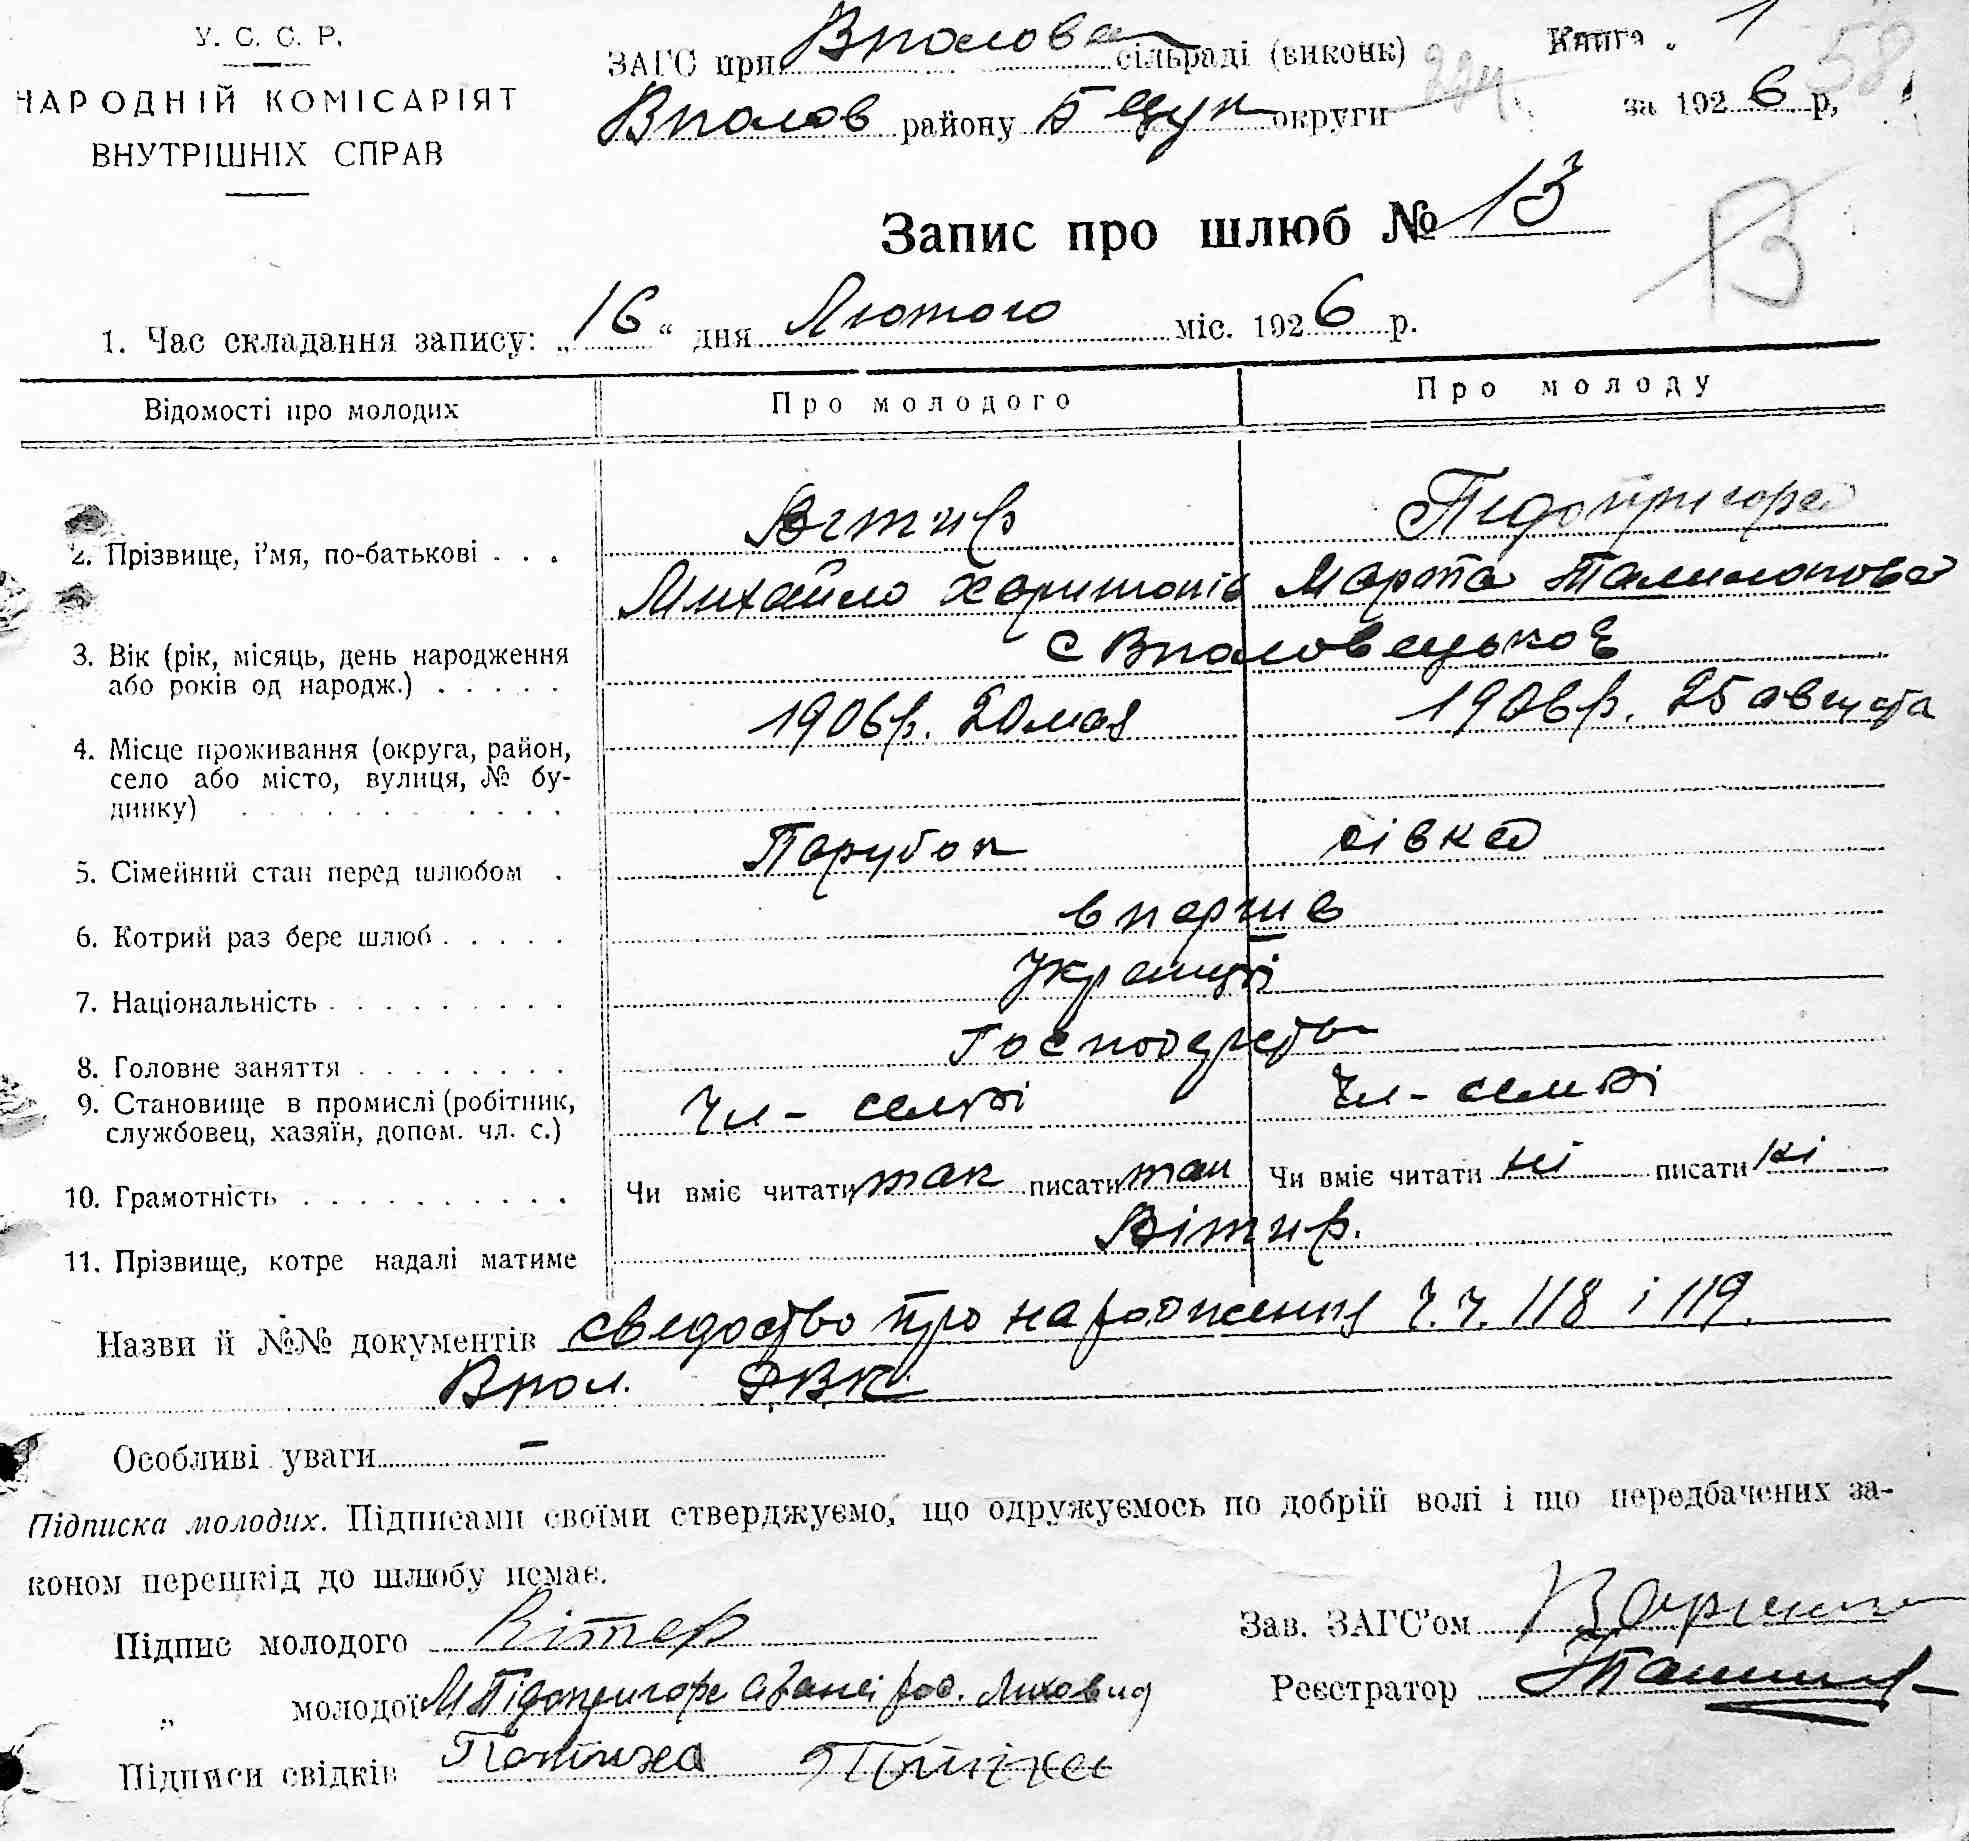 У. С. С. Р.
НАРОДНІЙ КОМІСАРІЯТ
ВНУТРІШНІХ СПРАВ
ЗАГС при Вполова сільраді (виконк)
Вполов району Б Щук округи
Книга 1
за 1926 р,
58
Запис про шлюб № 13
В
1. Час складання запису: „16“ дня Лютого міс. 1926 р.
Відомості про молодих Про молодого Про молоду
2. Прізвище, ім'мя, по-батькові . . . Вітир Підопригора
Михайло Харитонів Марта Талимонова
с Вполовецької
3. Вік (рік, місяць, день народження
або років од народж.) . . . . . 1906 р. 20 мая 1906 р. 25 августа
4. Місце проживання (округа, район,
село або місто, вулиця, № бу-
динку) . . . . . . . . . .
5. Сімейний стан перед шлюбом . Парубок дівка
6. Котрий раз бере шлюб . . . . . вперше
7. Національність . . . . . . . . . Українці
8. Головне заняття . . . . . . . . Господарство
9. Становище в промислі (робітник,
службовец, хазяїн, допом. чл. с.) Чл - семьі Чл - семьі
10. Грамотність . . . . . . . . . . Чи вміє читати так писати так Чи вміє читати ні писати ні
11. Прізвище, котре надалі матиме Вітир.
Назви й №№ документів сведоство про народження ч.ч. 118 і 119.
Впол. РВК
Особливі уваги –
Підписка молодих. Підписами своїми стверджуємо, що одружуємось по добрій волі і що передбачених за-
коном перешкід до шлюбу немає.
Підпис молодого Вітер
„ молодої М Підопригора
Підписи свідків
Зав. ЗАГС'ом
Реєстратор